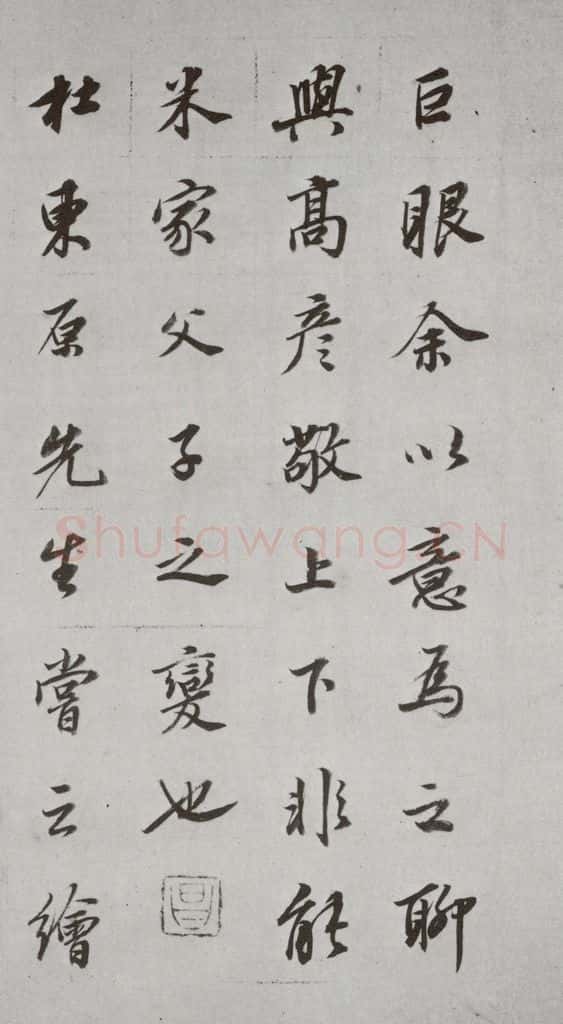 巨眼余以意為之聊
與高彥敬上下非能
米家父子之變也
杜東原先生嘗云繪
shufawang.CN